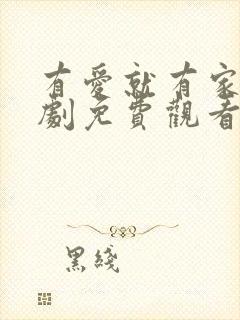 有愛就有家
劇免費觀看
黑綫